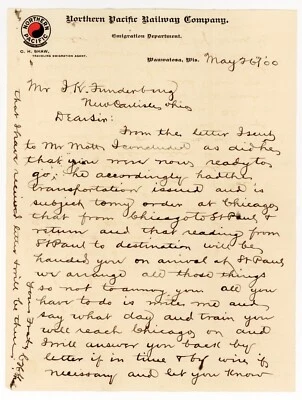 Northern Pacific Railway Company.
Emigration Department.
NORTHERN
PACIFIC
C. H. SHAW,
TRAVELING EMIGRATION AGENT.
Wauwatosa, Wis. May 26 '00
Mr I K Funderburg
New Carlisle, Ohio
Dear Sir:
From the letter I sent
to Mr Mott I concluded as did he
that you were now ready to
go; he accordingly had the
transportation issued and is
subject to my order at Chicago
that from Chicago to St Paul &
return and that reading from
St Paul to destination will be
handed you on arrival at St Paul
we arrange all those things
so not to annoy you all you
have to do is write me and
say what day and train you
will reach Chicago on and
I will answer you back by
letter if in time & by wire if
necessary and let you know
that I have received letter & will be there.
Yours Truly C H Shaw